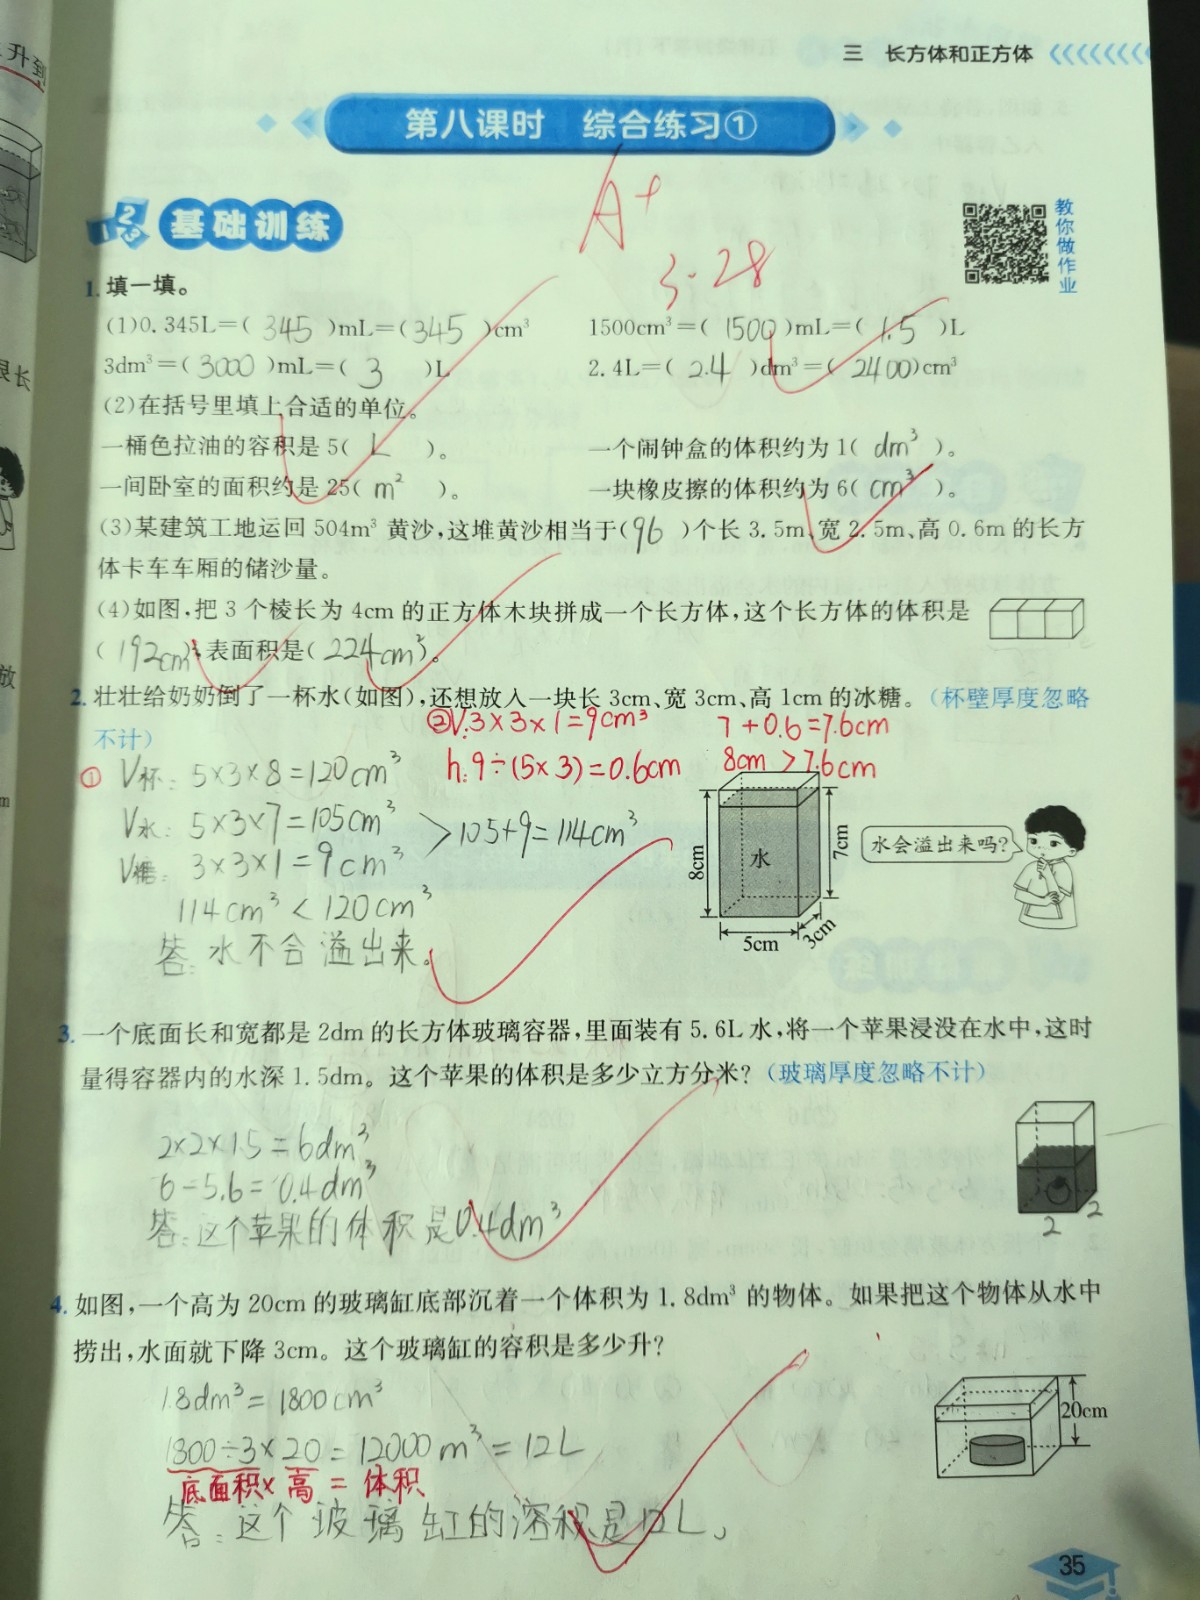 三 长方体和正方体
第八课时 综合练习①
A+
3·28
基础训练
教你做作业
1. 填一填。
(1)0.345L=( 345 )mL=( 345 )cm³ 1500cm³=( 1500 )mL=( 1.5 )L
3dm³=( 3000 )mL=( 3 )L 2.4L=( 2.4 )dm³=( 2400 )cm³
(2)在括号里填上合适的单位。
一桶色拉油的容积是 5( L )。 一个闹钟盒的体积约为 1( dm³ )。
一间卧室的面积约是 25( m² )。 一块橡皮擦的体积约为 6( cm³ )。
(3)某建筑工地运回 504m³ 黄沙,这堆黄沙相当于( 96 )个长 3.5m、宽 2.5m、高 0.6m 的长方
体卡车车厢的储沙量。
(4)如图,把 3 个棱长为 4cm 的正方体木块拼成一个长方体,这个长方体的体积是
( 192cm³ ),表面积是( 224cm² )。
2. 壮壮给奶奶倒了一杯水(如图),还想放入一块长 3cm、宽 3cm、高 1cm 的冰糖。(杯壁厚度忽略
不计)
②V:3×3×1=9cm³ 7+0.6=7.6cm
h:9÷(5×3)=0.6cm 8cm>7.6cm
① V杯: 5×3×8=120cm³
V水: 5×3×7=105cm³
>105+9=114cm³
V糖: 3×3×1=9cm³
114cm³<120cm³
答:水不会溢出来。
8cm
水
7cm
5cm
3cm
水会溢出来吗?
3. 一个底面长和宽都是 2dm 的长方体玻璃容器,里面装有 5.6L 水,将一个苹果浸没在水中,这时
量得容器内的水深 1.5dm。这个苹果的体积是多少立方分米?(玻璃厚度忽略不计)
2×2×1.5=6dm³
6-5.6=0.4dm³
答:这个苹果的体积是0.4dm³
2
2
4. 如图,一个高为 20cm 的玻璃缸底部沉着一个体积为 1.8dm³ 的物体。如果把这个物体从水中
捞出,水面就下降 3cm。这个玻璃缸的容积是多少升?
1.8dm³=1800cm³
1800÷3×20=12000m³=12L
底面积×高=体积
答:这个玻璃缸的溶积是12L。
20cm
35